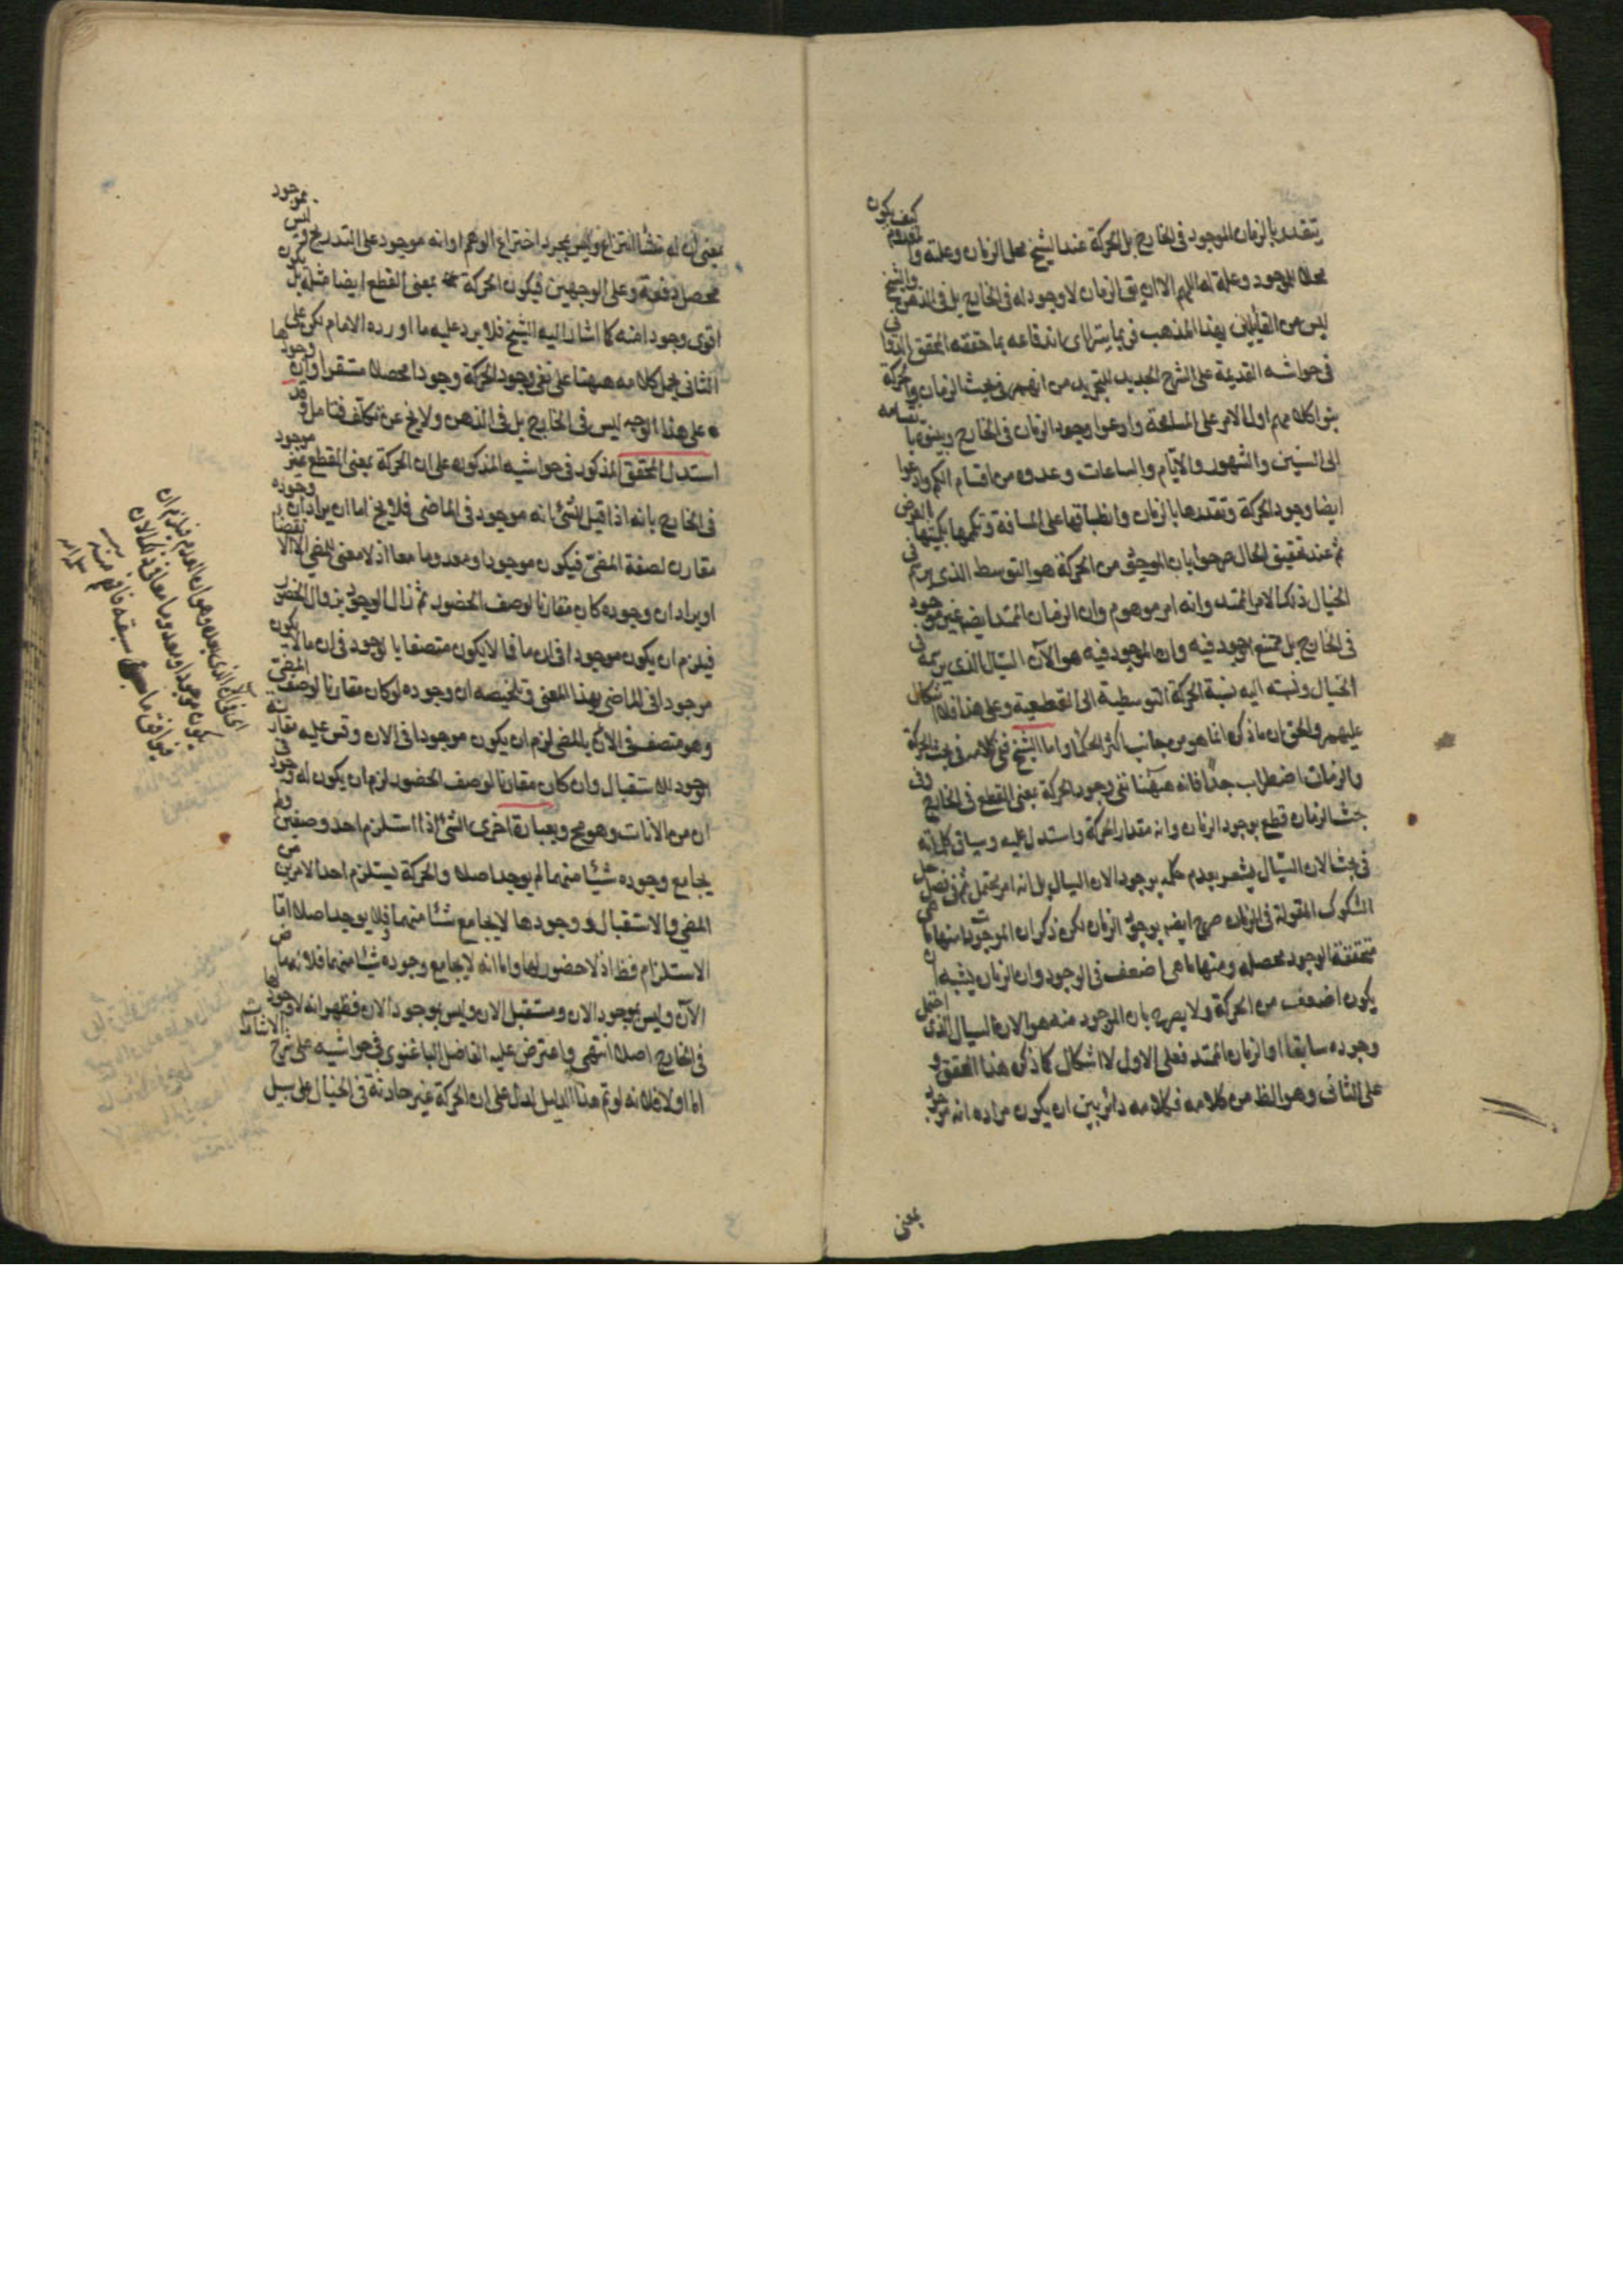 يتقدر بالزمان الموجود فى الخارج بل الحركة عند الشيخ محل الزمان وعلته و كيف يكون المعدوم
محلا للموجود وعلة له اللهم الا ان يق الزمان لا وجود له فى الخارج بل فى الذهن والشيخ
ليس من القايلين بهذا المذهب فربما يترااى اندفاعه بما حققه المحقق الدوانى
فى حواشيه القديمة على الشرح الجديد للتجريد من انهم فى بحث الزمان والحركة
بنوا كلامهم اولا الامر على المسامحة وادعوا وجود الزمان فى الخارج وبينوا انقسامه
الى السنين والشهور والايام والساعات وعدوه من اقسام الكم وادعوا
ايضا وجود الحركة وتقدرها بالزمان وانطباقها على المسافة وتكمها بكميتها بالعرض
ثم عند تحقيق الحال صرحوا بان الموجود من الحركة هو التوسط الذى يرسم فى
الخيال ذلك الامر الممتد وانه امر موهوم وان الزمان الممتد ايضا غير موجود
فى الخارج بل يمتنع الوجود فيه وان الموجود فيه هو الآن السيال الذى يرسمه فى
الخيال ونسبته اليه نسبة الحركة التوسطية الى القطعية وعلى هذا فلا اشكال
عليهم والحق ان ما ذكره انما هو من جانب اكثر الحكماء واما الشيخ ففى كلامه فى بحث الحركة
والزمان اضطراب جدا فانه ههنا نفى وجود الحركة بمعنى القطع فى الخارج وفى
بحث الزمان قطع بوجود الزمان وانه مقدار الحركة واستدل عليه وسياق كلماته
فى بحث الان السيال يشعر بعدم حكمه بوجود الان السيال بل انه امر يحتمل ثم فى فصل حل
الشكوك المقولة فى الزمان صرح ايضا بوجود الزمان لكن ذكر ان الموجودات منها ما هى
متحققة الوجود محصلة ومنها ما هى اضعف فى الوجود وان الزمان يشبه ان
يكون اضعف من الحركة ولا يصرح بان الموجود منه هو الان السيال الذى احتمل
وجوده سابقا او الزمان الممتد فعلى الاول لا اشكال كما ذكره هذا المحقق و
على الثانى وهو الظ من كلامه فكلامه دائر بين ان يكون مراده انه موجود
بمعنى
بمعنى ان له منشأ انتزاع وليس بمجرد اختراع الوهم او انه موجود على التدريج وليس بموجود
محصل دفعة وعلى الوجهين فيكون الحركة بمعنى القطع ايضا مثله بل يكون
اقوى وجودا منه كما اشار اليه الشيخ فلا يرد عليه ما اورده الامام لكن على
الثانى يحمل كلامه ههنا على نفى وجود الحركة وجودا محصلا مستقرا وان وجودها
على هذا الوجه ليس فى الخارج بل فى الذهن ولا يخ عن تكلف فتامل وقد
استدل المحقق المذكور فى حواشيه المذكورة على ان الحركة بمعنى القطع غير موجود
فى الخارج بانه اذا قيل لشئ انه موجود فى الماضى فلا يخ اما ان يراد ان وجوده
مقارن لصفة المضى فيكون موجودا ومعدوما معا اذ لا معنى للمضى الا الانقضاء
او يراد ان وجوده كان مقارنا لوصف الحضور ثم زال الوجود بزوال الحضور
فيلزم ان يكون موجودا فى ان ما فما لا يكون متصفا بالوجود فى ان ما لا يكون
موجودا فى الماضى بهذا المعنى وتلخيصه ان وجوده لو كان مقارنا لوصف المضى
وهو متصف فى الان بالمضى لزم ان يكون موجودا فى الان وقس عليه مقارنة
الوجود للاستقبال وان كان مقارنا لوصف الحضور لزم ان يكون له وجود فى
ان من الانات وهو مح وبعبارة اخرى الشئ اذا استلزم احد وصفين ولم
يجامع وجوده شيئا منهما لم يوجد اصلا والحركة يستلزم احد الامرين من
المضى والاستقبال ووجودها لا يجامع شئا منهما فلا يوجد اصلا اما
الاستلزام فظ اذ لا حضور لها واما انه لا يجامع وجوده شيئا منهما فلانه ماض
الآن وليس بموجود الان ومستقبل الان وليس بموجود الان فظهر انه لا وجود لها
فى الخارج اصلا انتهى واعترض عليه الفاضل الباغنوى فى حواشيه على شرح الاشارات
اما اولا فلانه لو تم هذا الدليل لدل على ان الحركة غير حادثة فى الخيال على سبيل